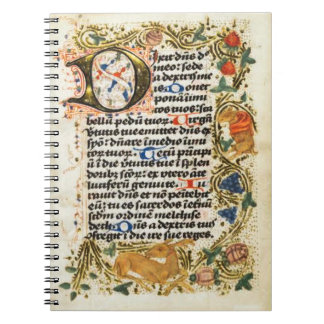 Dixit dn̄s d̄
meo: sede
a dextris me
is Donec
ponā inimi
cos tuos: sca
bellū pedū tuoꝝ Virgā
virtutis tue emittet dn̄s ex
syō: dn̄are ī medio inimi
coꝝ tuoꝝ Tecū principi
ū ī die virtutis tue ī splen
doribꝰ sc̄oꝝ: ex vtero āte
luciferū genui te Iu
rauit dn̄s et nō penitebit
eū: tu es sacerdos ī eternū
scd̄m ordinē melchyse
dech Dn̄s a dextris tuis
ꝯfregit ī die ire sue reges